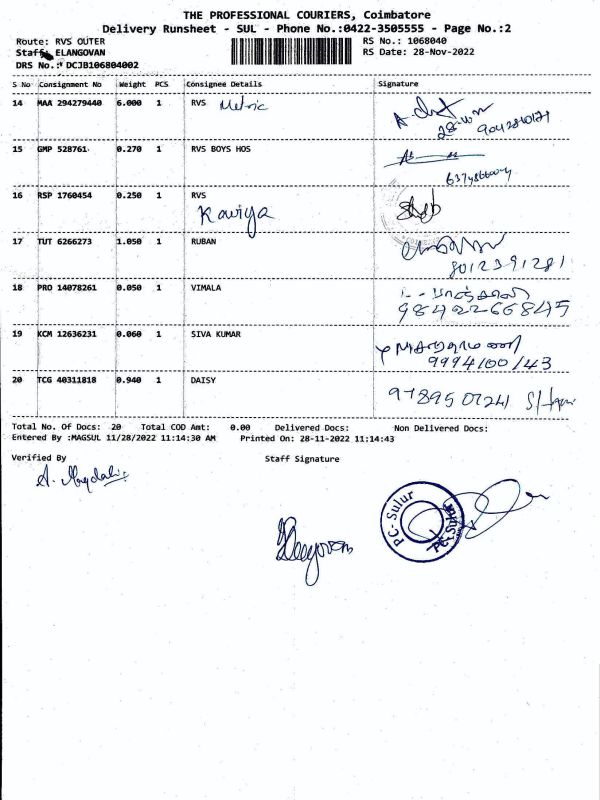 THE PROFESSIONAL COURIERS, Coimbatore
Delivery Runsheet - SUL - Phone No.:0422-3505555 - Page No.:2
Route: RVS OUTER
RS No.: 1068040
Staff: ELANGOVAN
RS Date: 28-Nov-2022
DRS No.: DCJB106804002
S No Consignment No Weight PCS Consignee Details Signature
14 MAA 294279440 6.000 1 RVS Metric
15 GMP 528761 0.270 1 RVS BOYS HOS
16 RSP 1760454 0.250 1 RVS
Kaviya
17 TUT 6266273 1.050 1 RUBAN
8012391281
18 PRO 14078261 0.050 1 VIMALA
9842266845
19 KCM 12636231 0.060 1 SIVA KUMAR
9994100143
20 TCG 40311818 0.940 1 DAISY
Total No. Of Docs: 20 Total COD Amt: 0.00 Delivered Docs: Non Delivered Docs:
Entered By :MAGSUL 11/28/2022 11:14:30 AM Printed On: 28-11-2022 11:14:43
Verified By Staff Signature
PC-Sulur
PC-Sulur